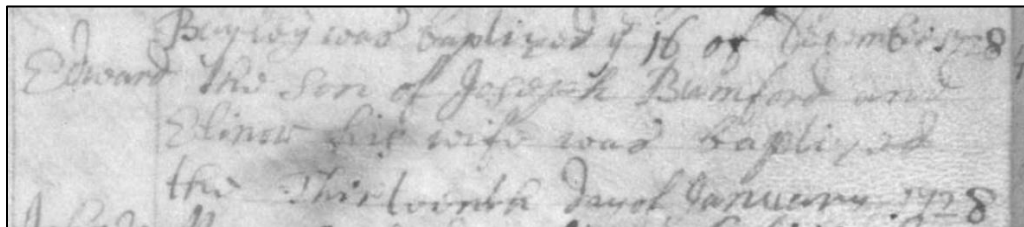 was baptized ye 16 of December 1728
Edward the son of Joseph Bumford and
Elinor his wife was baptized
the Thirteenth day of January 1728